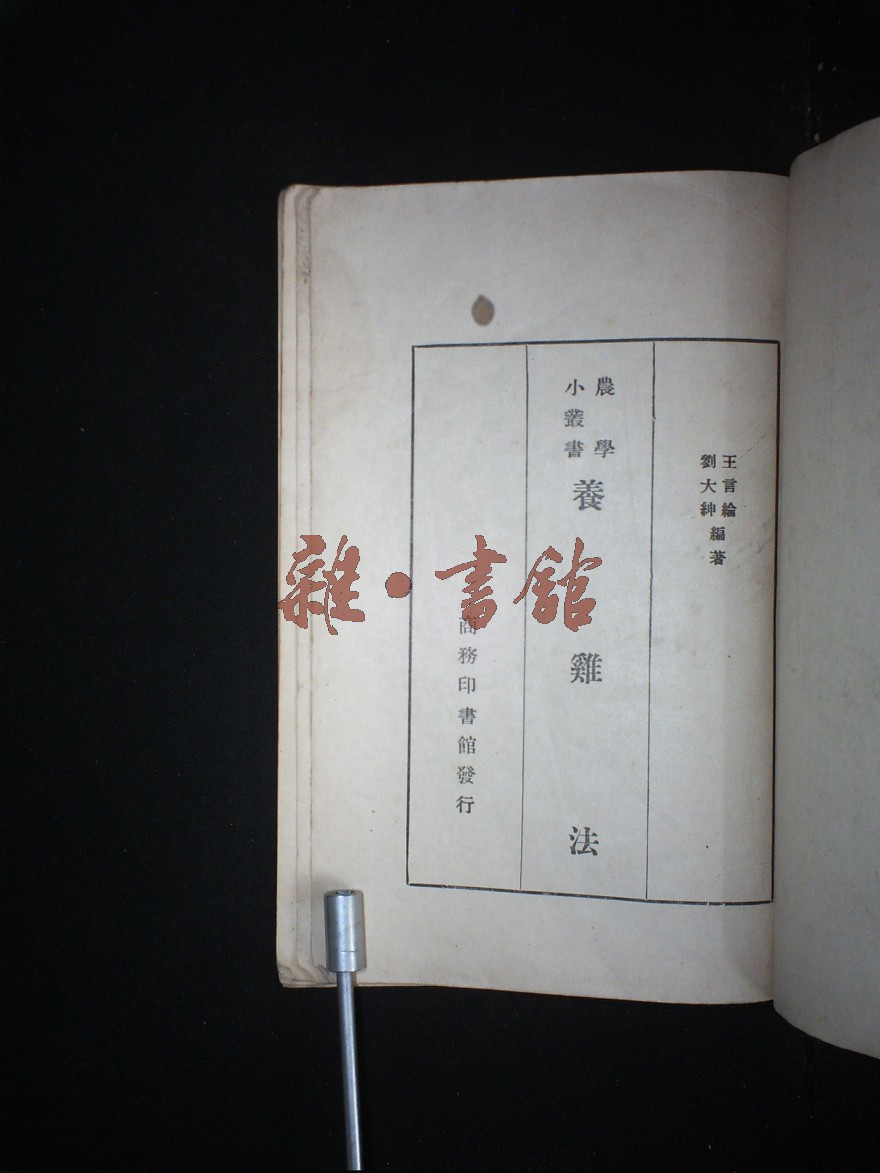 王言綸
劉大紳
編著
農學
小叢書
養雞法
商務印書館發行
雜·書館